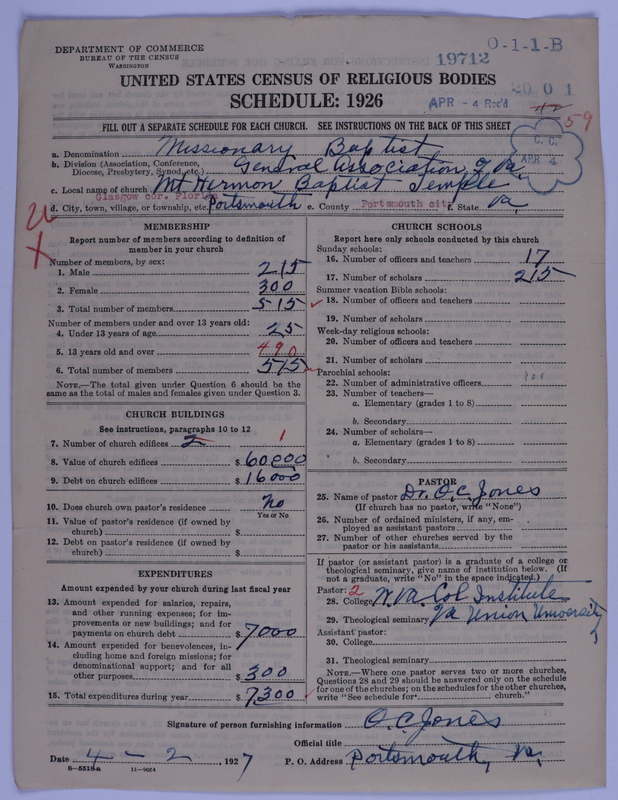 DEPARTMENT OF COMMERCE
BUREAU OF THE CENSUS
WASHINGTON
19712
O-1-1-B
UNITED STATES CENSUS OF RELIGIOUS BODIES
SCHEDULE: 1926
APR - 4 Rec'd
FILL OUT A SEPARATE SCHEDULE FOR EACH CHURCH. SEE INSTRUCTIONS ON THE BACK OF THIS SHEET
59
C. C.
APR 4
a. Denomination Missionary Baptist
b. Division (Association, Conference, Diocese, Presbytery, Synod, etc.) General Association of Va.
c. Local name of church Mt Hermon Baptist Temple
Glasgow cor. Florida
d. City, town, village, or township, etc. Portsmouth e. County Portsmouth city f. State Va,
MEMBERSHIP
Report number of members according to definition of member in your church
Number of members, by sex:
1. Male 215
2. Female 300
3. Total number of members 515
Number of members under and over 13 years old:
4. Under 13 years of age 25
5. 13 years old and over 490
6. Total number of members 515
NOTE.—The total given under Question 6 should be the same as the total of males and females given under Question 3.
CHURCH BUILDINGS
See instructions, paragraphs 10 to 12
7. Number of church edifices 2 1
8. Value of church edifices $ 60000
9. Debt on church edifices $ 16000
10. Does church own pastor's residence No
Yes or No
11. Value of pastor's residence (if owned by church) $
12. Debt on pastor's residence (if owned by church) $
EXPENDITURES
Amount expended by church during last fiscal year
13. Amount expended for salaries, repairs, and other running expenses; for improvements or new buildings; and for payments on church debt $ 7000
14. Amount expended for benevolences, including home and foreign missions; for denominational support; and for all other purposes $ 300
15. Total expenditures during year $ 7300
CHURCH SCHOOLS
Report here only schools conducted by this church
Sunday schools:
16. Number of officers and teachers 17
17. Number of scholars 215
Summer vacation Bible schools:
18. Number of officers and teachers
19. Number of scholars
Week-day religious schools:
20. Number of officers and teachers
21. Number of scholars
Parochial schools:
22. Number of administrative officers
23. Number of teachers—
a. Elementary (grades 1 to 8)
b. Secondary
24. Number of scholars—
a. Elementary (grades 1 to 8)
b. Secondary
PASTOR
25. Name of pastor Dr. O. C. Jones
(If church has no pastor, write "None")
26. Number of ordained ministers, if any, employed as assistant pastors
27. Number of other churches served by the pastor or his assistants
If pastor (or assistant pastor) is a graduate of a college or theological seminary, give name of institution below. (If not a graduate, write "No" in the space indicated.)
Pastor: 2
28. College W. Va. Col Institute
29. Theological seminary Va Union University
Assistant pastor:
30. College
31. Theological seminary
NOTE.—Where one pastor serves two or more churches, Questions 28 and 29 should be answered only on the schedule for one of the churches; on the schedules for the other churches, write "See schedule for church."
Signature of person furnishing information O. C. Jones
Official title
Date 4 - 2, 1927
P. O. Address Portsmouth, Va,
8-5518a
11-9024